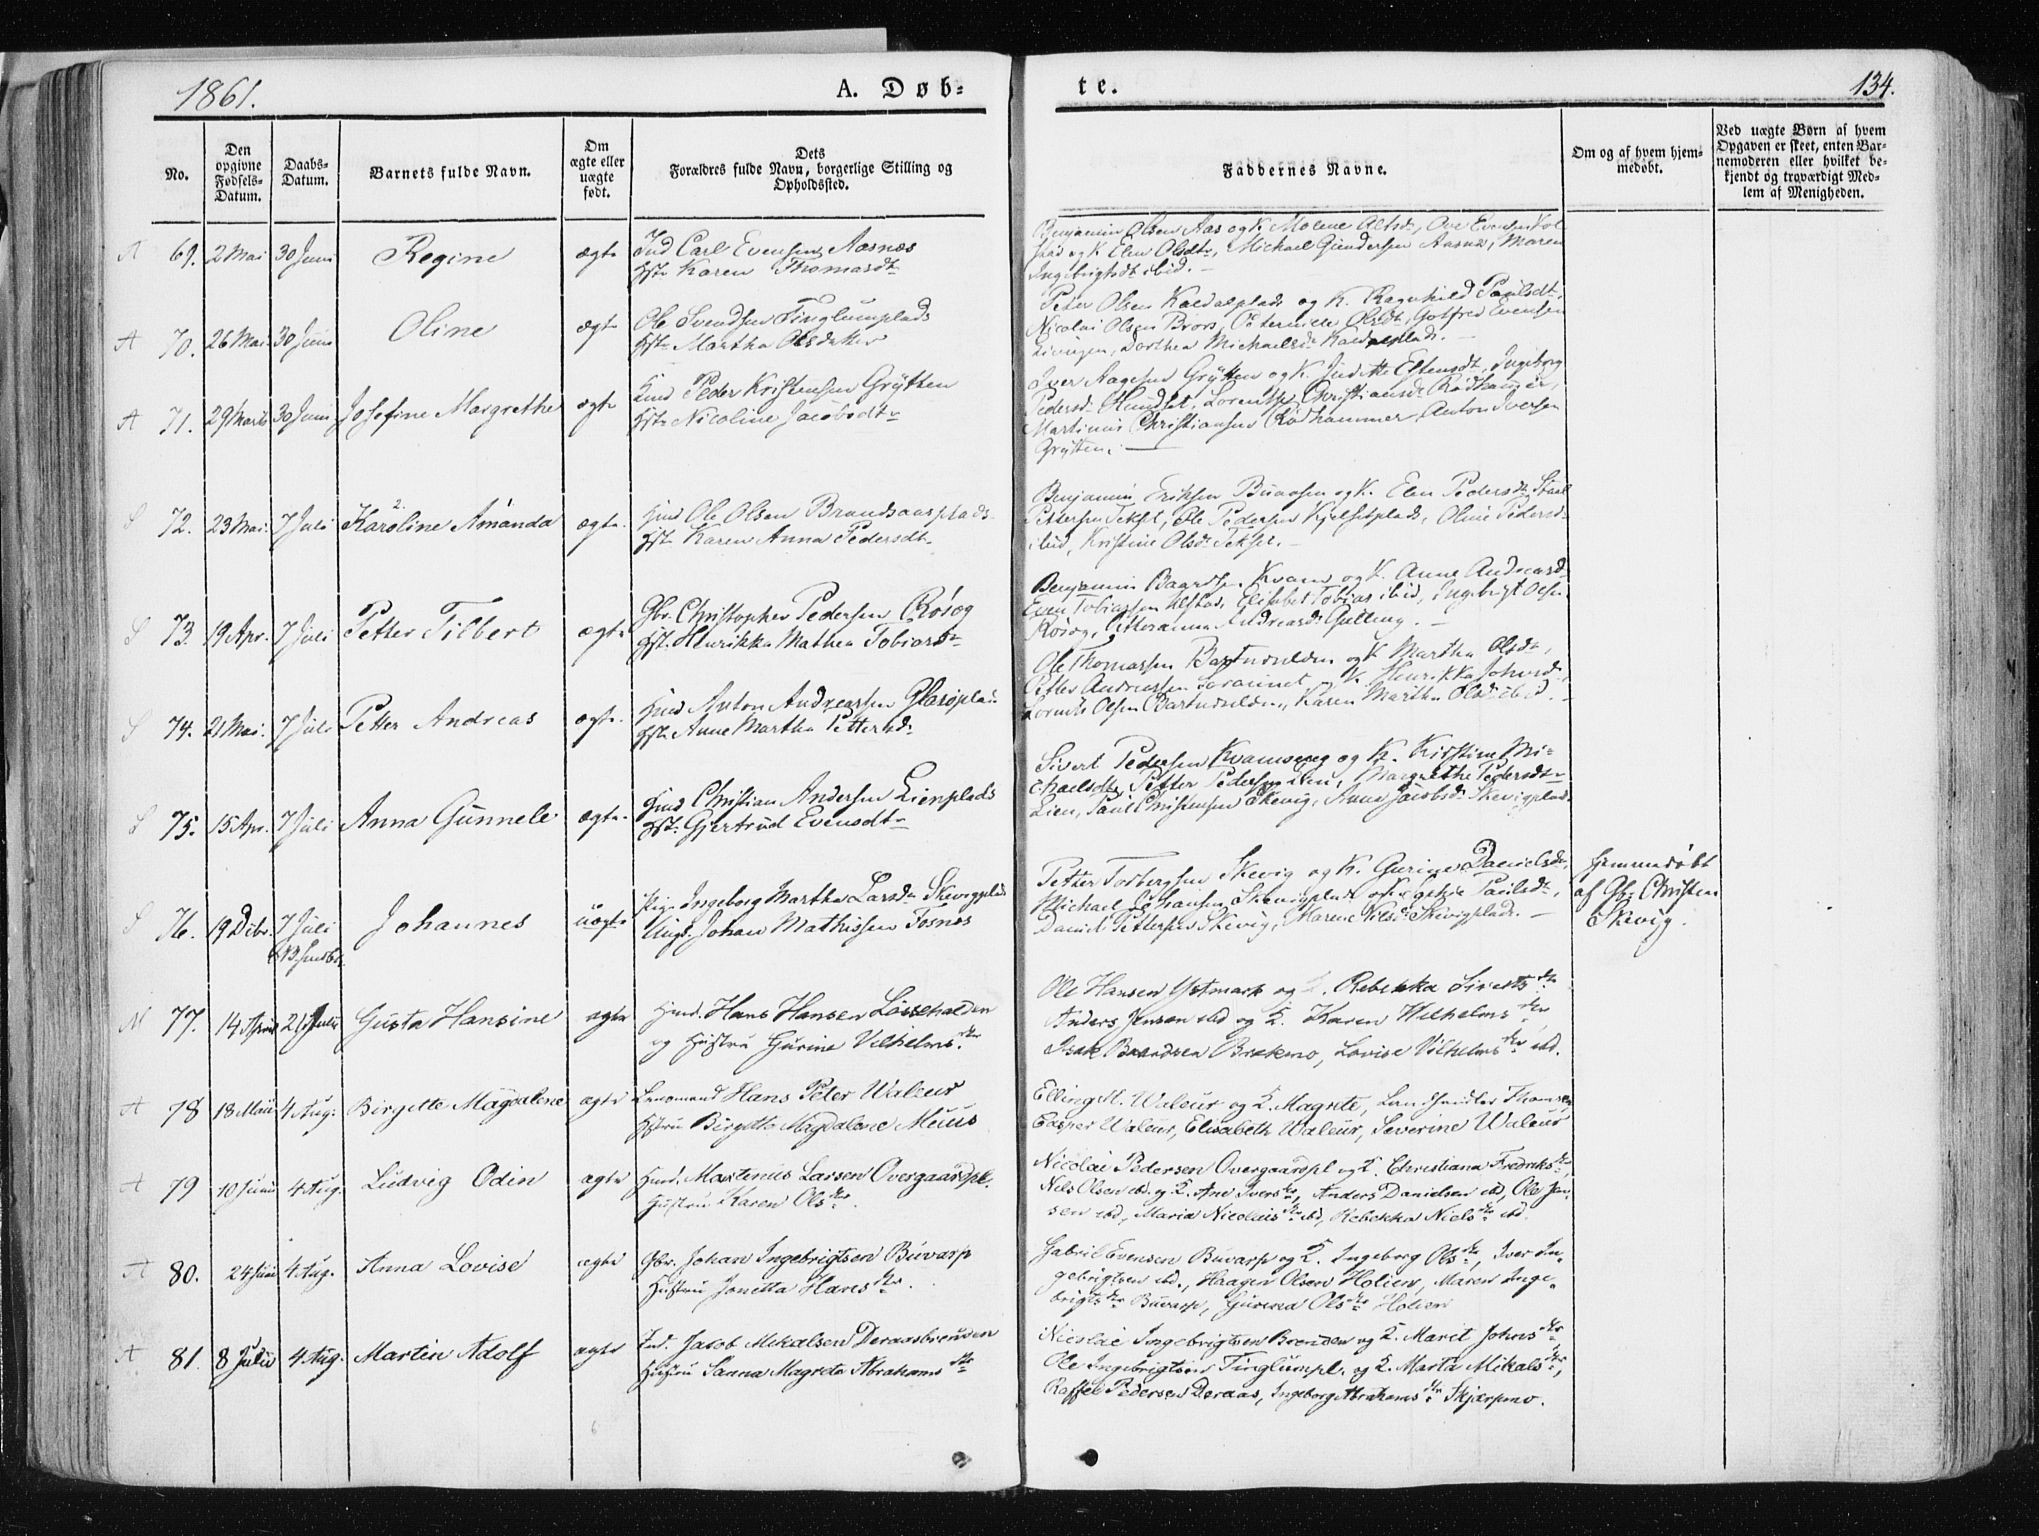 1861.
A. Døb-
te.
134.
No.
Den opgivne Fødsels-Datum.
Daabs-Datum.
Barnets fulde Navn.
Om ægte eller uægte født.
Dets Forældres fulde Navn, borgerlige Stilling og Opholdssted.
Faddernes Navne.
Om og af hvem hjem-
medøbt.
Ved uægte Børn af hvem
Opgaven er skeet, enten Bar-
nemoderen eller hvilket be-
kjendt og troværdigt Med-
lem af Menigheden.
A 69. 2 Mai 30 Juni Regine ægte Ind Carl Evensen Aasnæs
Hst. Karen Thomasdtr
Benjamin Olsen Aas og K. Molene Olsdr, Ove Evensen Kol
stad og K. Elen Olsdtr, Michael Gundersen Aasnæs, Maren
Ingebrigtsdt ibid. —
A 70. 26 Mai 30 Juni Oline ægte Ole Svendsen Tinglumplads
Hst. Martha Olsdatter
Peter Olsen Kaldalplads og K. Ragnhild Paulsdtr,
Nicolai Olsen Brors, Olsdt, Gotfred Evensen
Dorthea Michaelsdr Kaldalplads. —
A 71. 29 Marts 30 Juni Josefine Margrethe ægte Hmd Peder Kristensen Grytten
Hst. Nicoline Jacobsdtr
Iver Aagesen Grytten og K. Judithe Eltensdt, Ingeborg
Pedersdr Hundset, Lorentse Christiansdr Rødhammer,
Martinus Christiansen Rødhammer, Anton Iversen
Grytten. —
S 72. 23 Mai. 7 Juli 2. Karoline Amanda ægte. Hmd Ole Olsen Brandsaasplads.
Hst. Karen Anna Pedersdtr
Benjamin Eriksen Buaasen og K. Elen Pedersdr
Pettersen Tekset, Ole Pedersen Kjelsetplads, Oline Pedersd.
ibid, Kristine Olsdr Tekset. —
S 73. 19 Apr. 7 Juli Petter Tilbert ægte Gbr. Christopher Pedersen Rosog
Hst. Henrikka Mathea Tobiasdr
Benjamin Baardsen Kvam og K. Anne Andreasdr
Even Tobiassen Ulstad, Elisabet Tobias ibid, Ingebrigt Olsen
Rosog, Petteranna Andreasdr Gulling. —
S 74. 21 Mai. 7 Juli Petter Andreas ægte. Hmd Anton Andreassen Glasøplads
Hst. Anne Martha Pettersdr
Ole Thomassen Bartnesvalden og K. Martha Olsdr,
Petter Andreassen og K. Henrikka Johnsdr,
Lorents Olsen Bartnesvalden, Karen Martha Olsdr ibid. —
S 75. 15 Apr. 7 Juli Anna Gunnele ægte. Hmd Christian Andersen Lienplads
Hst. Gjertrud Evensdtr
Sivert Pedersen Kvamseng og K. Kirstine Mi-
chaelsdtr, Petter Pedersen Lien, Margrethe Pedersdtr
Lien, Paul Christensen Skevig, Anne Jacobsdr Skevigplads.
S 76. 19 Debr. 7 Juli Johannes uægte Pige Ingeborg Martha Larsdr Skevigplads
Ungk. Johan Mathissen Fosnæs
Petter Torbergsen Skevig og K. Gurine Danielsdr,
Michael Johansen Skevigplads og K. Paulsdtr,
Daniel Pettersen Skevig, Maren Nilsdr Skevigplads. —
hjemmedøbt
af Gbr. Christen
Skevig.
N 77. 14 April 21 Juli Gusta Hansine ægte Hmd. Hans Hansen Løssehalden
og Hustru Gurine Vilhelms.dtr
Ole Hansen Ystmark og K. Rebekka Siverts dtr
Anders Jensen ibd og K. Karen Wilhelms dtr
Isak Brandsen Brækmo, Lovise Vilhelms dtr ibd.
A 78 18 Mai 4 Aug. Birgitte Magdalene ægte Lensmand Hans Peter Waleur
Hstru Birgitte Magdalene Meuus
Elling M. Waleur og K. Magrete, Landhandler Thomsen,
Casper Waleur, Elisabeth Waleur, Severine Waleur
A 79 10 Juni 4 Aug. Ludvig Odin ægte Hmd. Martinus Larsen Overgaardpl.
Hustru Karen Ols dtr.
Nicolai Pedersen Overgaardspl og K. Christiana Fredriks dtr,
Nels Olsen ibd. og K. Ane Ivers dtr, Anders Danielsen ibd, Ole Jen
sen ibd, Maria Nicolais dtr ibd, Rebekka Niels dtr ibd.
A 80. 24 Juni 4 Aug. Anna Lovise ægte Gbr. Johan Ingebrigtsen Buvarp
Hustru Jonetta Hans dtr.
Gabriel Evensen Buvarp og K. Ingeborg Ols dtr, Iver In-
gebrigtsen ibd., Haagen Olsen Holien, Maren Inge-
brigts dtr Buvarp, Gurina Ols dtr Holien
A 81. 8 Juli 4 Aug. Martin Adolf ægte Ind. Jacob Mikalsen Deraasbrenden
Hustru Sanna Magreta Abrahams dtr
Nicolai Ingebrigtsen Brenden og K. Marit Johns dtr,
Ole Ingebrigtsen Tinglumpl. og K. Marta Mikals dtr,
Raffel Pedersen Deraas, Ingeborg Abrahams dtr Skjærpmo.